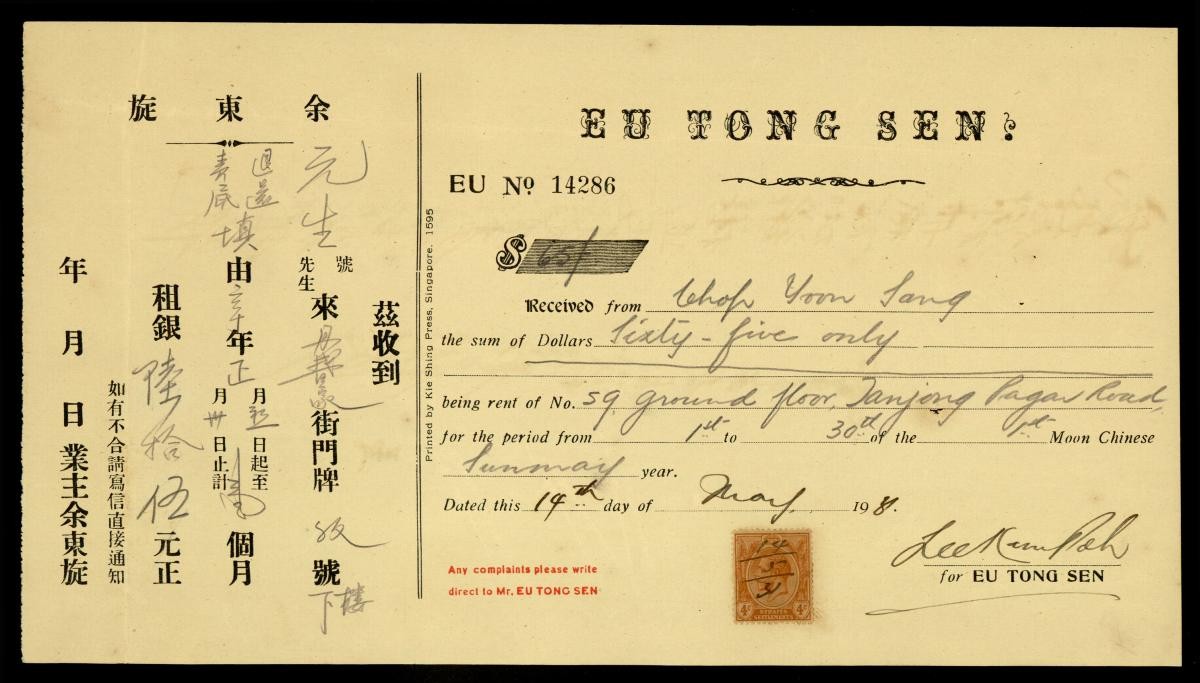 余東旋
茲收到
元生 號 先生 來 街門牌 號 下樓
由 辛 年 正 月 初 日起至 月 卅 日止計 個月
租銀 陸拾伍 元正
如有不合請寫信直接通知
年 月 日 業主余東旋
Printed by Kie Shing Press, Singapore. 1595
EU TONG SEN:
EU No 14286
$ 65/
Received from Chop Yoon Sang
the sum of Dollars Sixty-five only
being rent of No. 59, ground floor, Tanjong Pagar Road,
for the period from 1st to 30th of the 1st Moon Chinese
Sunmay year.
Dated this 14th day of May, 1931.
Any complaints please write
direct to Mr. EU TONG SEN
14
5
31
4c 4c
STRAITS
SETTLEMENTS
Lee Kum Poh
for EU TONG SEN